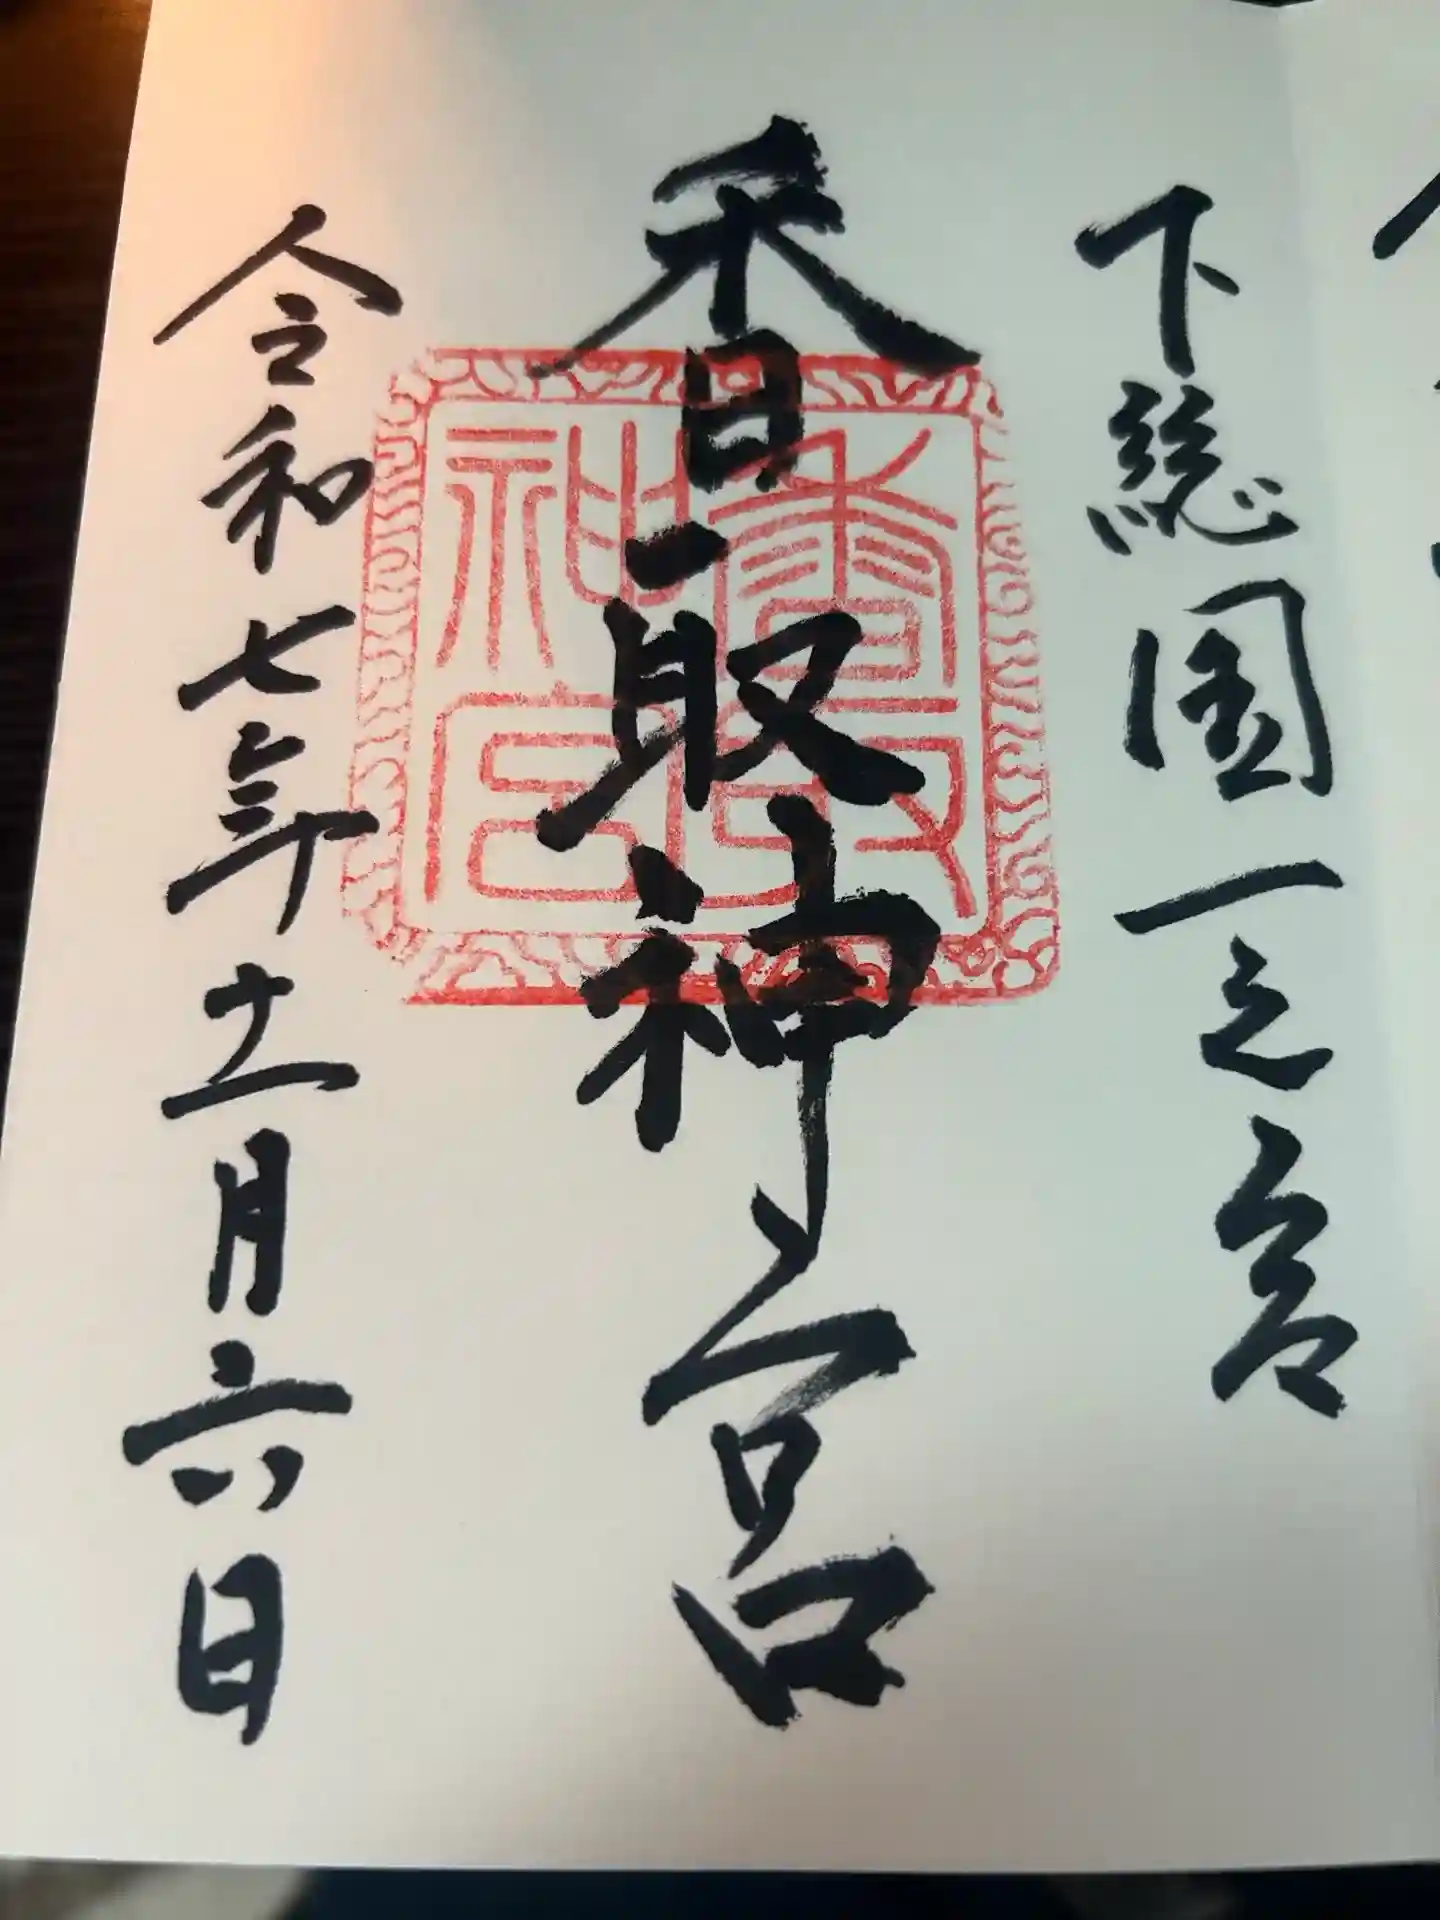 下総国一之宮
香取神宮
香取神宮
令和七年十一月六日